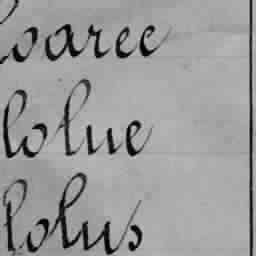 loaree
lolue
lolus